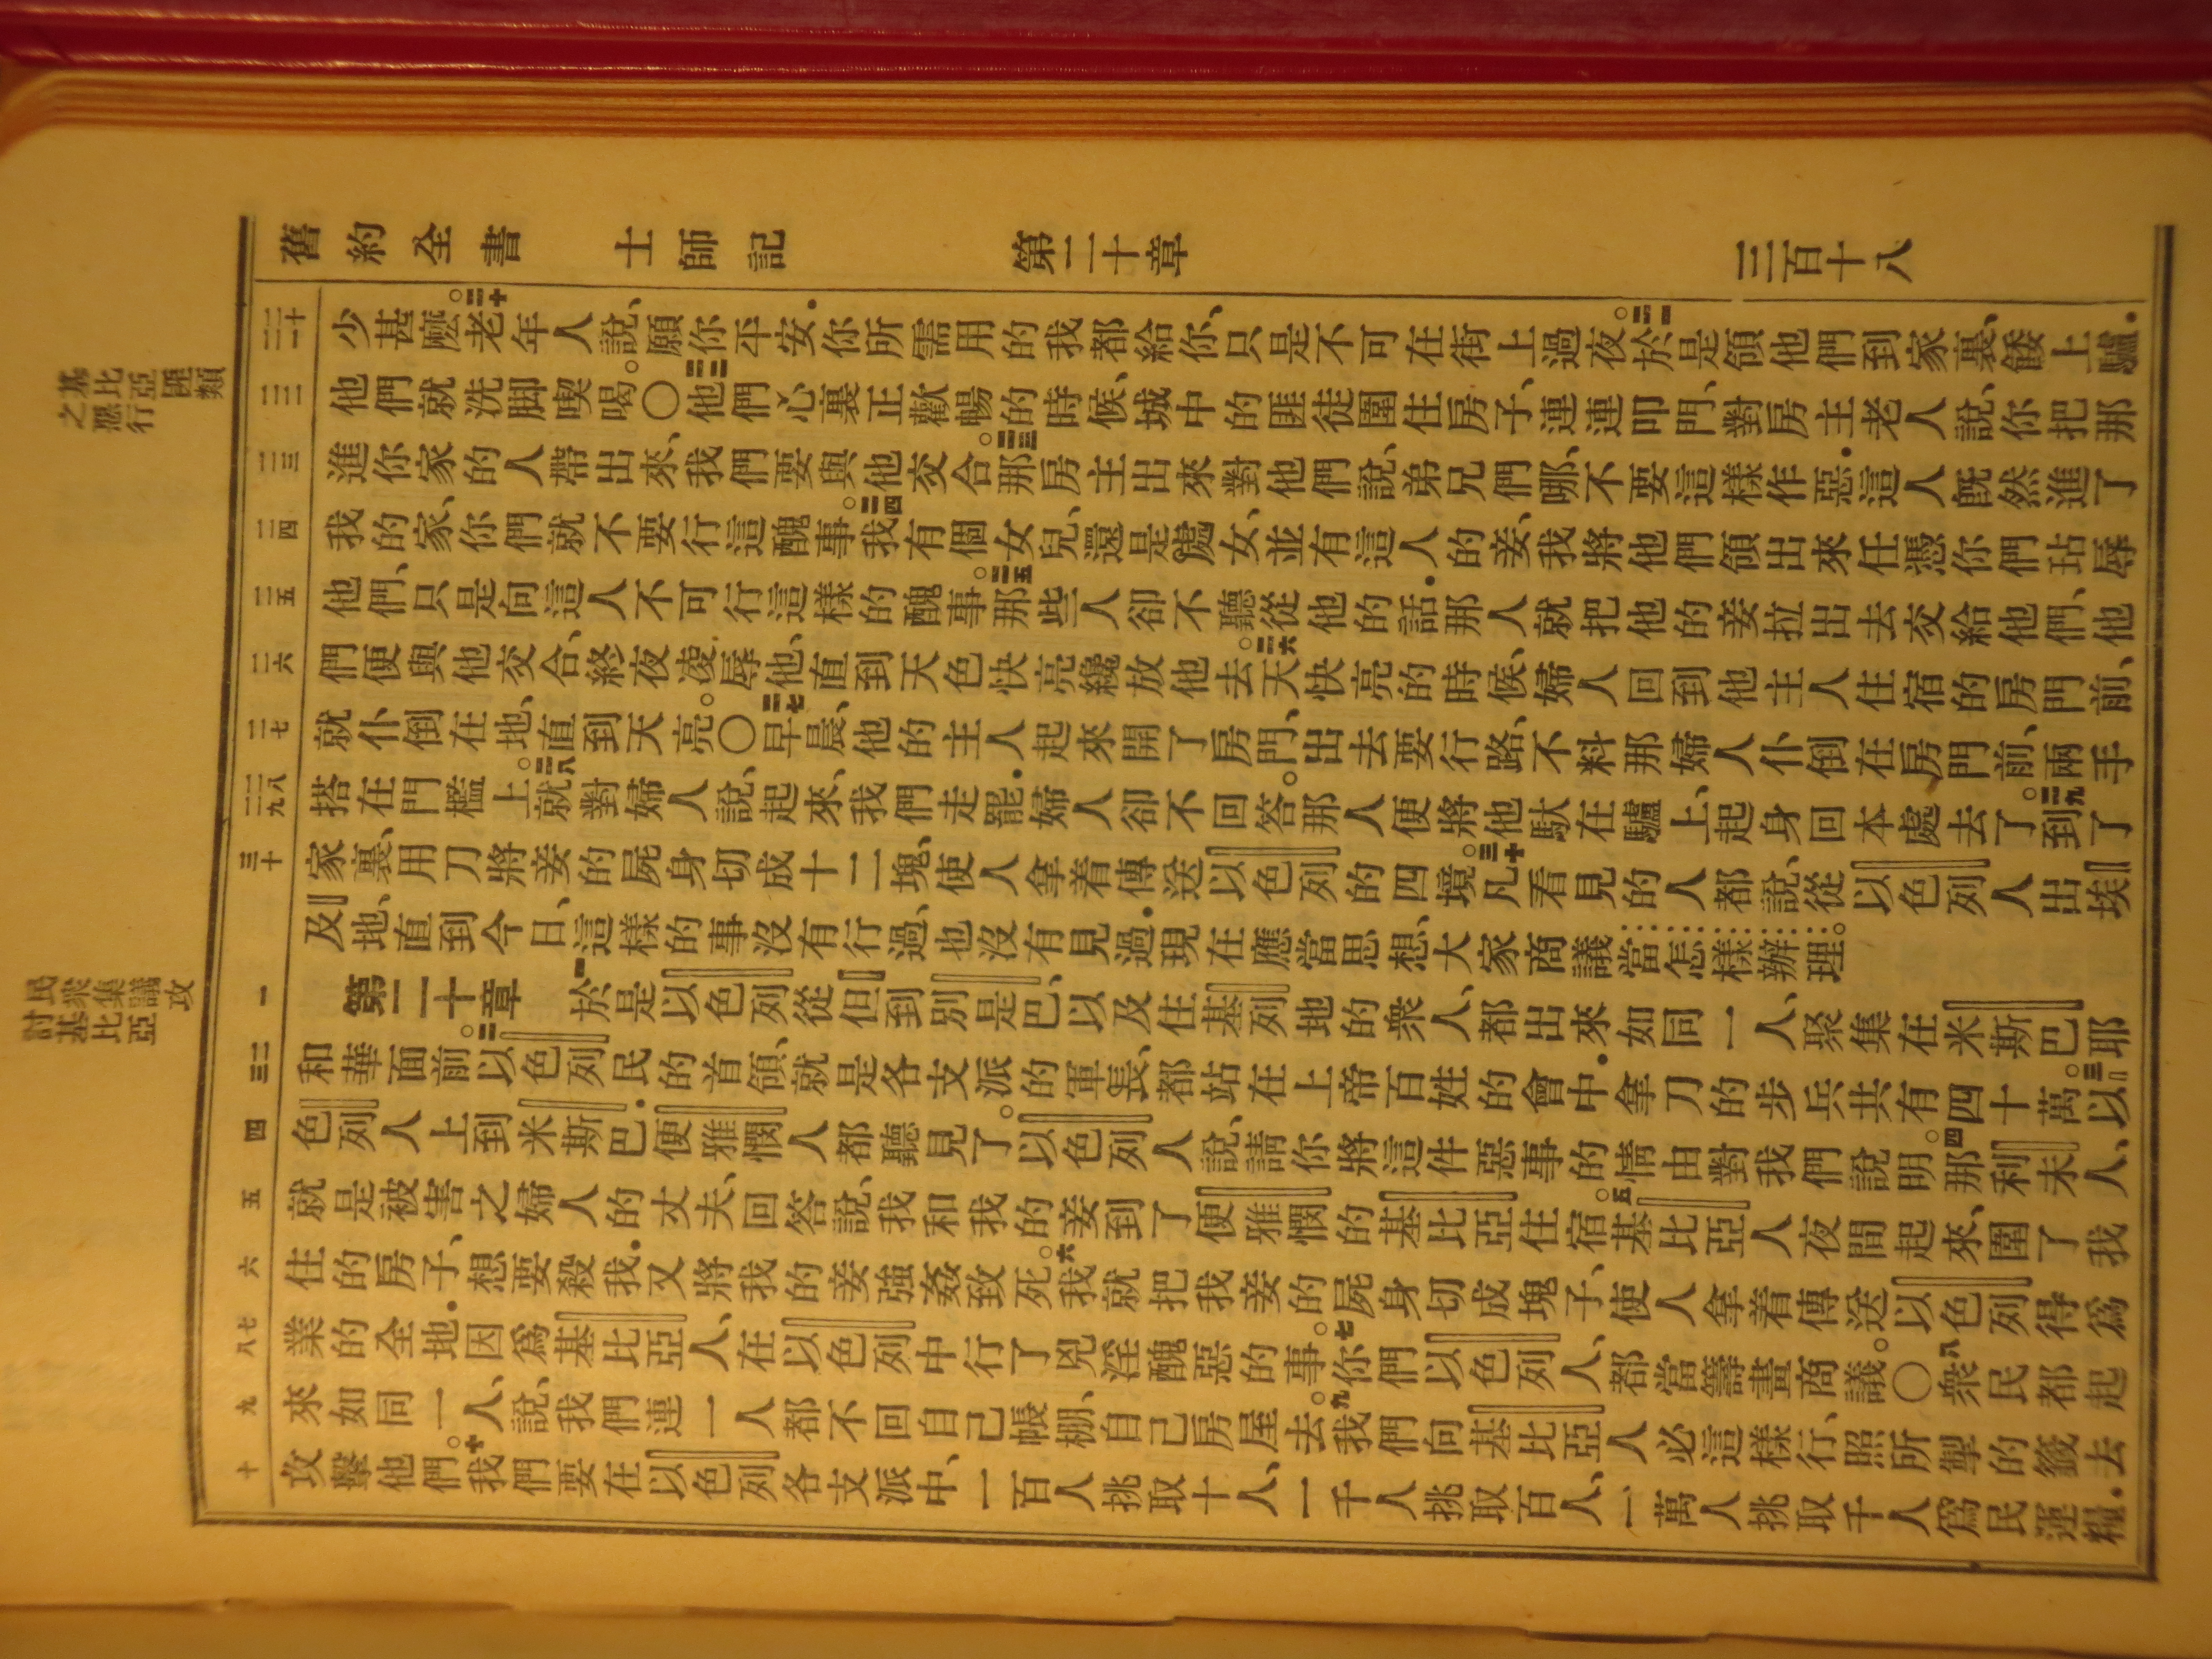 舊約全書 士師記 第二十章 三百十八
基比亞匪類
之惡行
民衆集議攻
討基比亞
二十 二一 少甚麽。二十老年人說、願你平安．你所需用的我都給你、只是不可在街上過夜。二一於是領他們到家裏、餧上驢．
二二 他們就洗脚喫喝。〇二二他們心裏正歡暢的時候、城中的匪徒圍住房子、連連叩門、對房主老人說、你把那
二三 進你家的人帶出來、我們要與他交合。二三那房主出來對他們說、弟兄們哪、不要這樣作惡．這人旣然進了
二四 我的家、你們就不要行這醜事。二四我有個女兒、還是處女、並有這人的妾、我將他們領出來任憑你們玷辱
二五 他們、只是向這人不可行這樣的醜事。二五那些人卻不聽從他的話．那人就把他的妾拉出去交給他們、他
二六 們便與他交合、終夜凌辱他、直到天色快亮纔放他去。二六天快亮的時候、婦人回到他主人住宿的房門前、
二七 就仆倒在地、直到天亮。〇二七早晨、他的主人起來開了房門、出去要行路、不料那婦人仆倒在房門前、兩手
二八 二九 搭在門檻上。二八就對婦人說、起來、我們走罷．婦人卻不回答。那人便將他馱在驢上、起身回本處去了。二九到了
三十 家裏、用刀將妾的屍身切成十二塊、使人拿着傳送以色列的四境。三十凡看見的人都說、從以色列人出埃
及地、直到今日、這樣的事沒有行過、也沒有見過．現在應當思想、大家商議當怎樣辦理。
一 第二十章 一於是以色列從但到別是巴、以及住基列地的衆人、都出來如同一人、聚集在米斯巴耶
二 三 和華面前。二以色列民的首領、就是各支派的軍長、都站在上帝百姓的會中．拿刀的步兵共有四十萬。三以
四 色列人上到米斯巴．便雅憫人都聽見了。以色列人說、請你將這件惡事的情由對我們說明。四那利未人、
五 就是被害之婦人的丈夫、回答說、我和我的妾到了便雅憫的基比亞住宿。五基比亞人夜間起來、圍了我
六 住的房子、想要殺我．又將我的妾強姦致死。六我就把我妾的屍身切成塊子、使人拿着傳送以色列得爲
七 八 業的全地．因爲基比亞人、在以色列中行了兇淫醜惡的事。七你們以色列人、都當籌畫商議。〇八衆民都起
九 來如同一人、說、我們連一人都不回自己帳棚、自己房屋去。九我們向基比亞人必這樣行、照所掣的籤去
十 攻擊他們。十我們要在以色列各支派中、一百人挑取十人、一千人挑取百人、一萬人挑取千人爲民運糧．